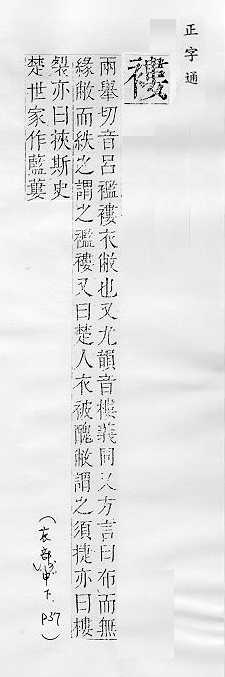 正字通
褸
兩舉切音呂襤褸衣敝也又尤韻音樓義同又方言曰布而無
緣敝而紩之謂之襤褸又曰楚人衣被醜敝謂之須捷亦曰摟
裂亦曰挾斯史
楚世家作藍蔞
(衣部申下.P57)